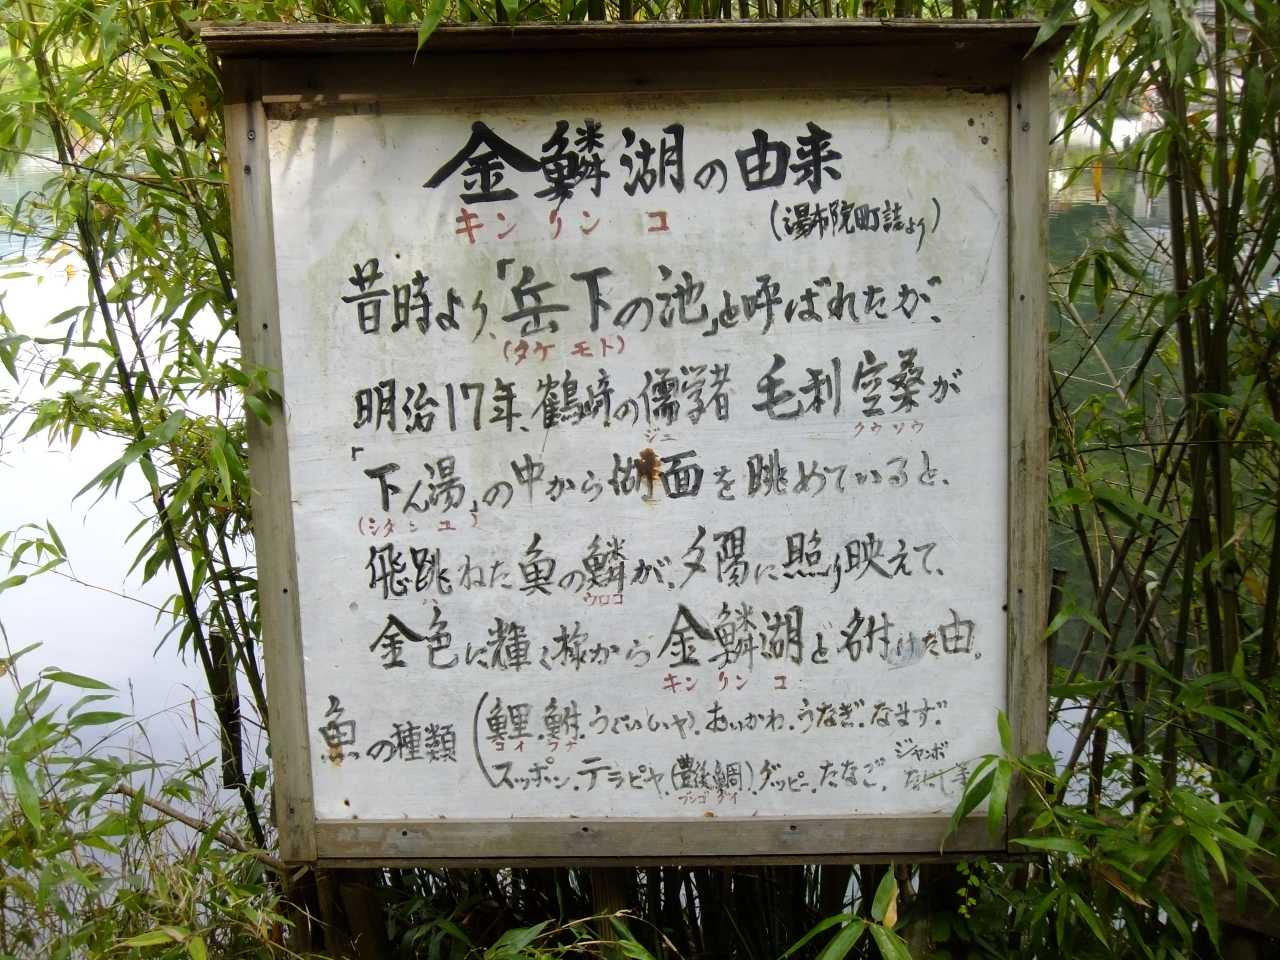 金鱗湖の由来
キン リン コ
(湯布院町誌より)
昔時より、「岳下の池」と呼ばれたが、
(タケ モト)
明治17年、鶴崎の儒学者 毛利空桑が
ジュ クウソウ
「下ん湯」の中から湖面を眺めていると、
(シタン ユ)
飛跳ねた魚の鱗が、夕陽に照り映えて、
ウロコ
金色に輝く様から金鱗湖と名付けた由。
キン リン コ
魚の種類
(鯉、鮒、うぐい(いや)、おいかわ、うなぎ、なまず、
コイ フナ
スッポン、テラピヤ、(豊後鯛)、グッピー、たなご、ジャンボ
ブンゴ ダイ